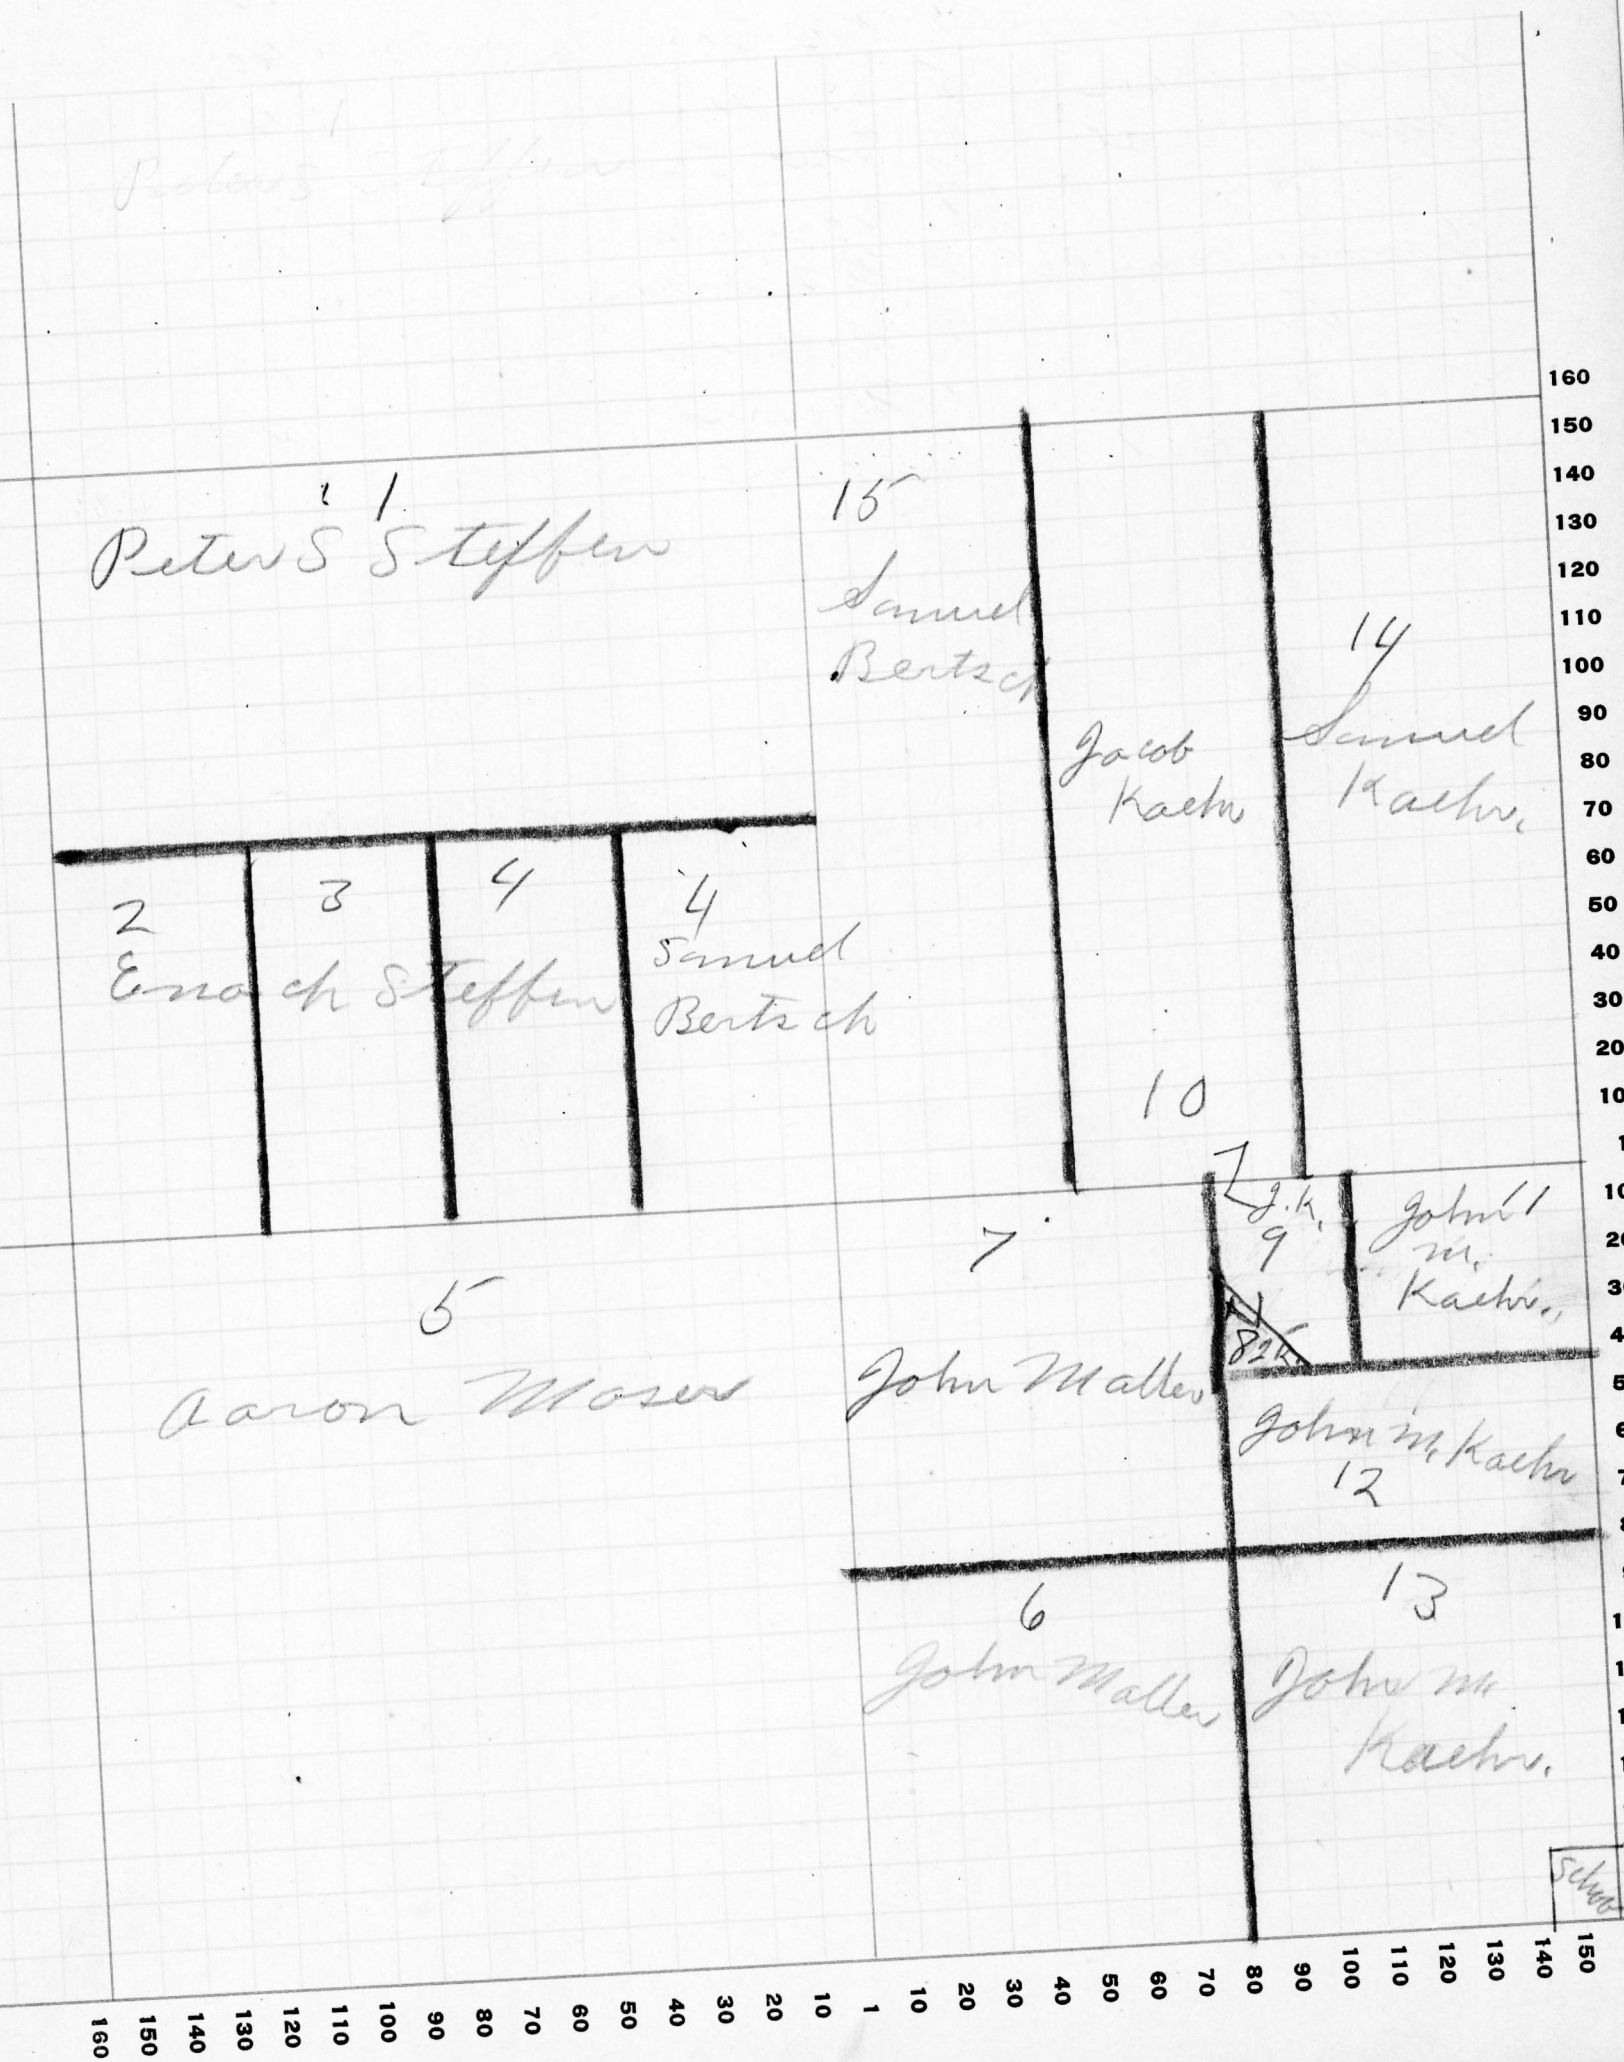 Peter S Steffen
1
Peter S Steffen
15
Samuel
Bertsch
Jacob
Kaehr
10
14
Samuel
Kaehr.
2
3
4
4
Enoch Steffen
Samuel
Bertsch
5
Aaron Moser
7
John Maller
J.K.
9
8
John 11
M.
Kaehr.
John M. Kaehr
12
6
John Maller
13
John M.
Kaehr.
School
160
150
140
130
120
110
100
90
80
70
60
50
40
30
20
10
1
10
160 150 140 130 120 110 100 90 80 70 60 50 40 30 20 10 1 10 20 30 40 50 60 70 80 90 100 110 120 130 140 150